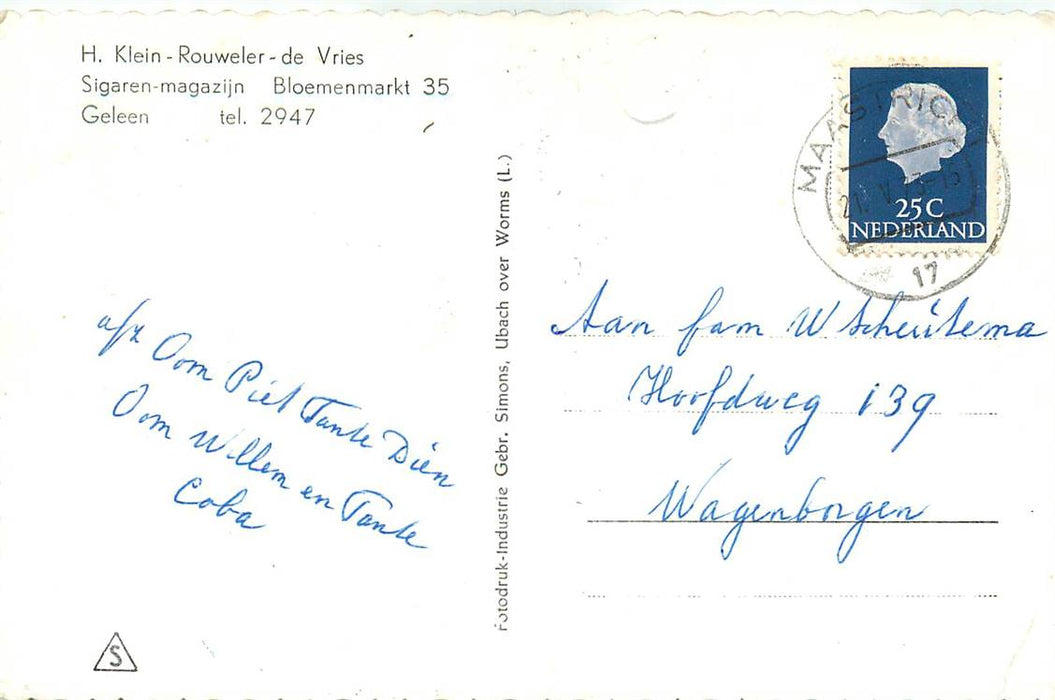 H. Klein - Rouweler - de Vries
Sigaren-magazijn Bloemenmarkt 35
Geleen tel. 2947
afz Oom Piet Tante Diên
Oom Willem en Tante
Coba
S
Fotodruk-Industrie Gebr. Simons, Ubach over Worms (L.)
MAASTRICH
21. V. 73-15
17
25 C
NEDERLAND
Aan fam W Scheûtema
Hoofdweg 139
Wagenborgen